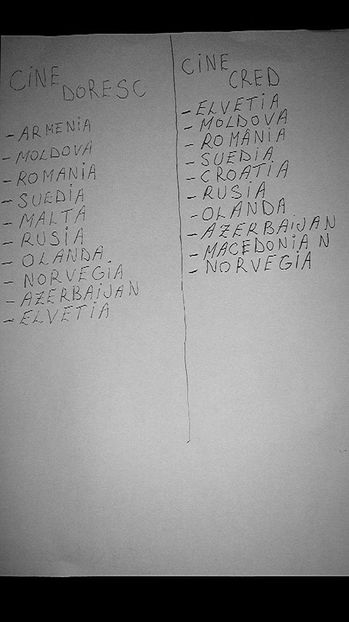 CINE
DORESC
- ARMENIA
- MOLDOVA
- ROMANIA
- SUEDIA
- MALTA
- RUSIA
- OLANDA
- NORVEGIA
- AZERBAIJAN
- ELVETIA
CINE
CRED
- ELVETIA
- MOLDOVA
- ROMÂNIA
- SUEDIA
- CROATIA
- RUSIA
- OLANDA
- AZERBAIJAN
- MACEDONIA N
- NORVEGIA